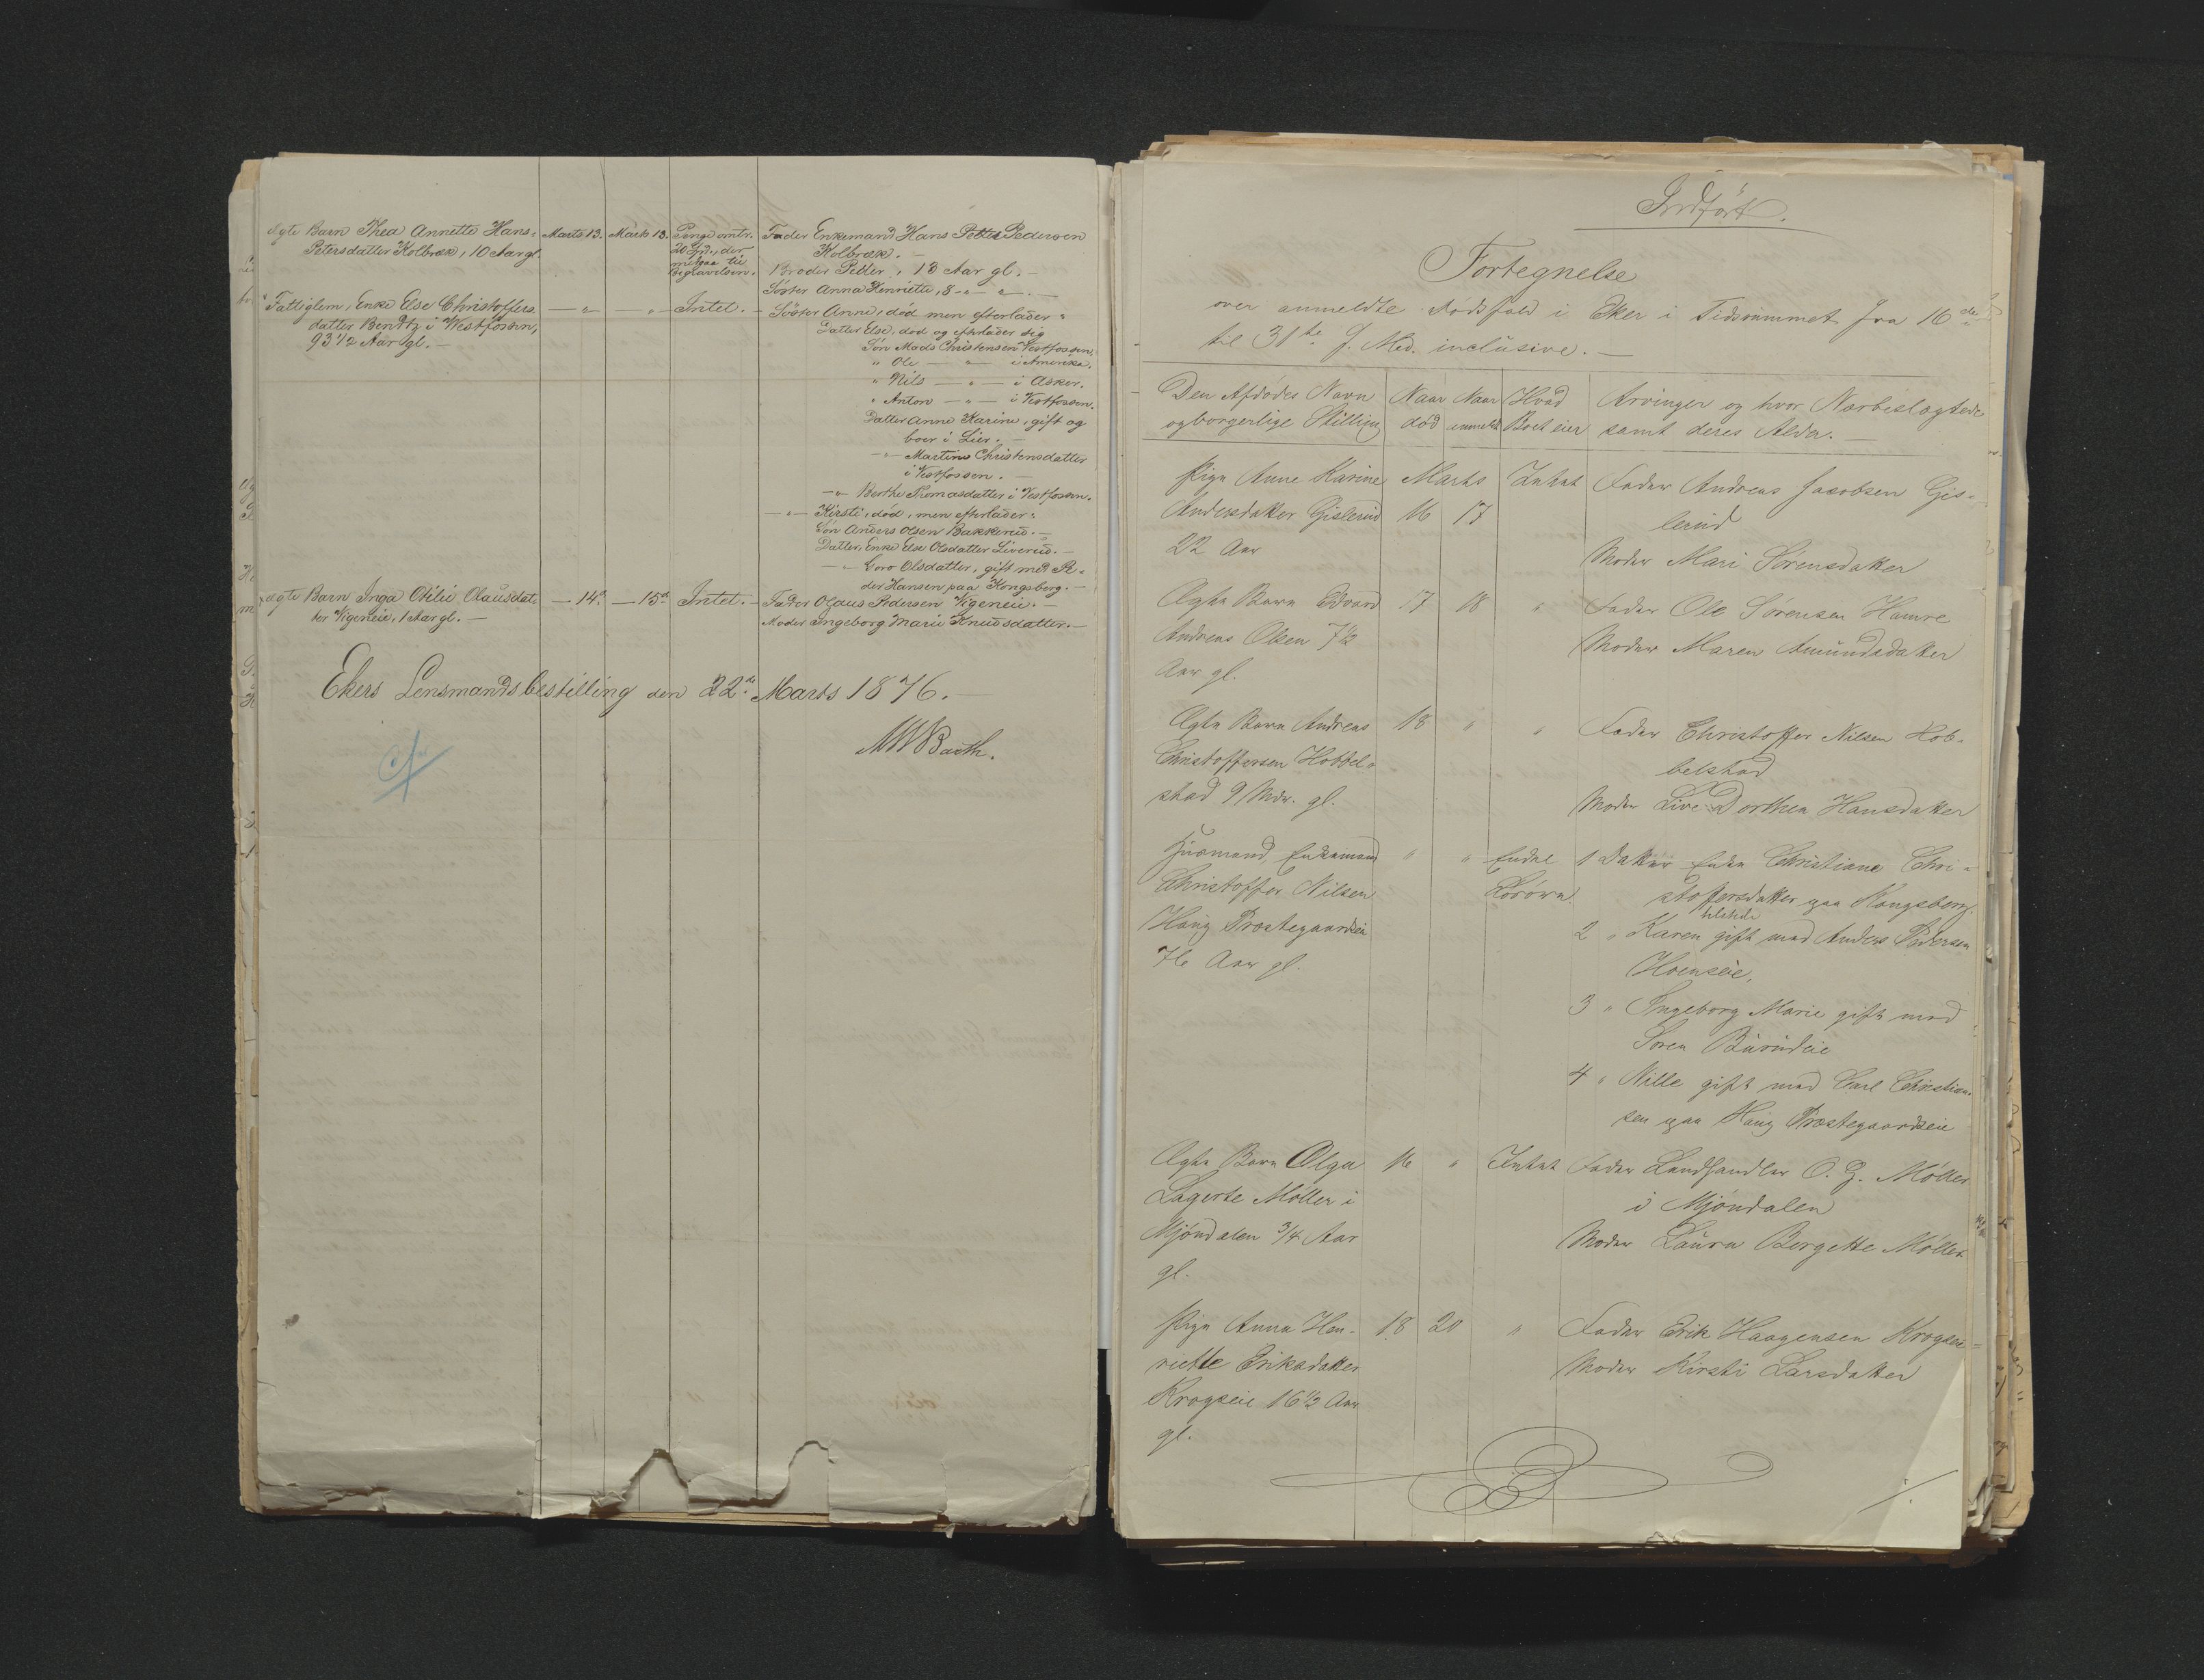 ægte Barn Thea Annette Hans- Marts 13. Marts 13. Penge omtr. Fader Enkemand Hans Petter Pedersen
Petersdatter Kolbræk, 10 Aar gl. 20 Spd., der Kolbræk. –
medgaa til
Begravelsen. Broder Petter, 13 Aar gl. –
Søster Anna Henriette, 8 – " – " –
Fattiglem, Enke Else Christoffers- – " – – " – Intet. – Søster Anne, død men efterlader:
datter Bendtz i Westfossen, Datter Else, død og efterlader sig
93 1/2 Aar gl. – Søn Mads Christensen Vestfossen.
" Ole – " – i Amerika.
" Nils – " – i Asker.
" Anton – " – i Vestfossen.
Datter Anne Karine, gift og
boer i Lier. –
– " – Martine Christensdatter
i Vestfossen. –
– " – Berthe Thomasdatter i Vestfossen.
– " – Kirsti, død, men efterlader:
Søn Anders Olsen Bakkerud. –
Datter, Enke Else Olsdatter Liverud. –
– " – Goro Olsdatter, gift med Pe-
der Hansen paa Kongsberg. –
ægte Barn Inga Otilie Olausdat- – 14d. – 15d. Intet. – Fader Olaus Pedersen Vigeneie. –
ter Vigeneie, 1 Aar gl. – Moder Ingeborg Marie Knudsdatter. –
Ekers Lensmandsbestilling den 22de Marts 1876. –
MWBarth.
Indført.
Fortegnelse
over anmeldte Dødsfald i Eker i Tidsrummet fra 16de
til 31te f. Md. inclusive. –
Den Afdødes Navn Naar Naar Hvad Arvinger og hvor Nærbeslægtede
og borgerlige Stilling død anmeldt Boet eier samt deres Alder. –
Pige Anne Karine Marts Intet Fader Andreas Jacobsen Gis-
Andersdatter Gislerud 16 17 lerud
22 Aar Moder Mari Sørensdatter
Ægte Barn Edvard 17 18 " Fader Ole Sørensen Hamre
Andreas Olsen 7 1/2 Moder Maren Amundsdatter
Aar gl.
Ægte Barn Andreas 18 " " Fader Christoffer Nilsen Hob-
Christoffersen Hobbel- belstad
stad 9 Mdr. gl. Moder Live Dorthea Hansdatter
Husmand Enkemand " " Endel 1 Datter Enke Christiane Chri-
Christoffer Nilsen Løsøre. stoffersdatter paa Kongsberg.
Haug Præstegaardseie 2 " Karen gift med Anders Pedersen
76 Aar gl. Hoenseie,
3 " Ingeborg Marie gift med
Søren Burudeie
4 " Nille gift med Carl Christian-
sen paa Haug Præstegaardseie
Ægte Barn Olga 16 " Intet Fader Landhandler O. G. Møller
Lagerte Møller i i Mjøndalen
Mjøndalen 3/4 Aar Moder Laura Bergette Møller
gl.
Pige Anna Hen- 18 20 " Fader Erik Haagensen Krogseie
riette Eriksdatter Moder Kirsti Larsdatter
Krogseie 16 1/2 Aar
gl.